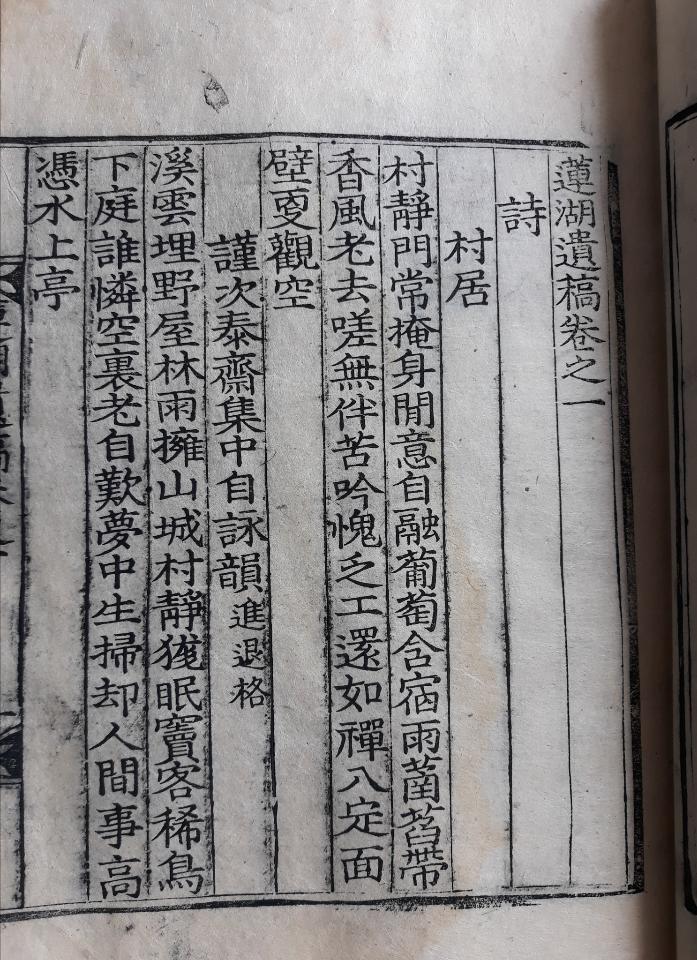 蓮湖遺稿卷之一
詩
村居
村靜門常掩身閒意自融葡萄含宿雨菡萏帶
香風老去嗟無伴苦吟愧乏工還如禪入定面
壁更觀空
謹次泰齋集中自詠韻進退格
溪雲埋野屋林雨擁山城村靜獲眠竇客稀鳥
下庭誰憐空裏老自歎夢中生掃却人間事高
憑水上亭